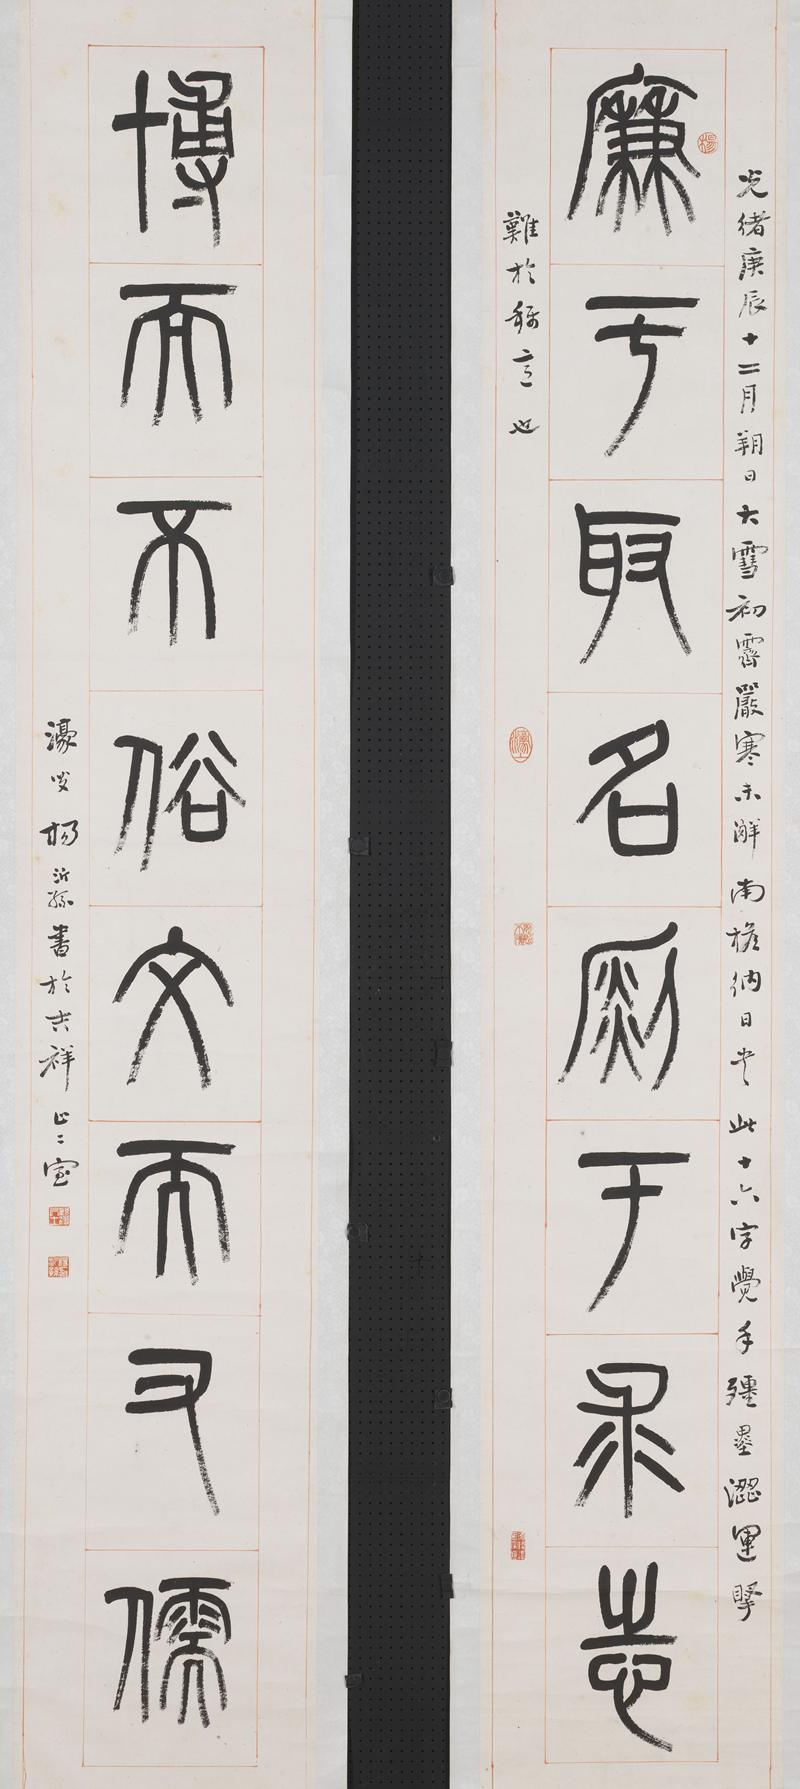 廉于取名
于求志
光緒庚辰十二月朔日大雪初霽嚴寒未解南檐納日書此十六字覺手殭墨澀運掔
難於稱意也
博而不俗文而又儒
濠叟楊沂孫書於吉祥止二室